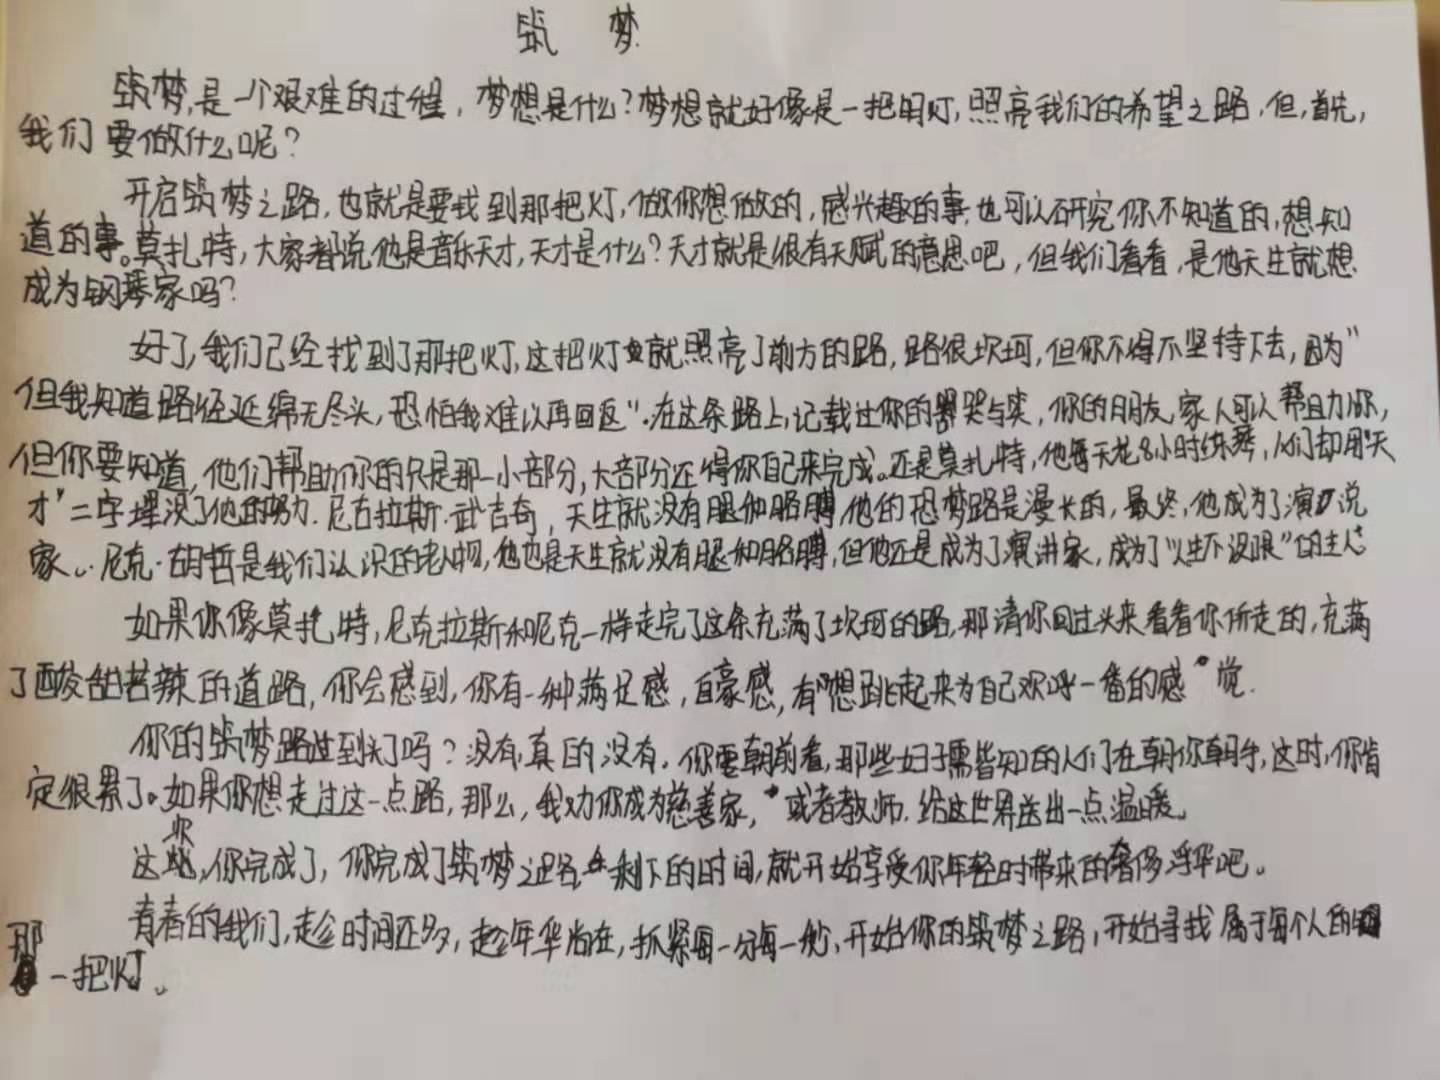 筑 梦
筑梦,是一个艰难的过程,梦想是什么?梦想就好像是一把明灯,照亮我们的希望之路,但,首先,
我们要做什么呢?
开启筑梦之路,也就是要找到那把灯,做你想做的,感兴趣的事,也可以研究你不知道的,想知
道的事。莫扎特,大家都说他是音乐天才,天才是什么?天才就是很有天赋的意思吧,但我们看看,是他天生就想
成为钢琴家吗?
好了,我们已经找到了那把灯,这把灯就照亮了前方的路,路很坎坷,但你不得不坚持下去,因为"
但我知道路径延绵无尽头,恐怕我难以再回返".在这条路上,记载过你的哭与笑,你的朋友,家人可以帮助你,
但你要知道,他们帮助你的只是那一小部分,大部分还得你自己来完成。还是莫扎特,他每天花8小时练琴,人们却用"天
才"二字埋没了他的努力.尼古拉斯·武吉奇,天生就没有腿和胳膊,他的梦路是漫长的,最终,他成为了演说
家。尼克·胡哲是我们认识的老人物,他也是天生就没有腿和胳膊,但他还是成为了演讲家,成为了"人生不设限"的主人
如果你像莫扎特,尼克拉斯和尼克一样走完了这条充满了坎坷的路,那请你回过头来看看你所走的,充满
了酸甜苦辣的道路,你会感到,你有一种满足感,自豪感,有想跳起来为自己欢呼一番的感觉.
你的筑梦路过到头了吗?没有,真的没有,你要朝前看,那些好于需皆知的人们在朝你朝手,这时,你肯
定很累了。如果你想走过这一点路,那么,我劝你成为慈善家,或者教师.给这世界送出一点温暖。
这次,你完成了,你完成了筑梦之路,剩下的时间,就开始享受你年轻时带来的奢侈浮华吧。
青春的我们,趁时间还多,趁年华尚在,抓紧每一分每一秒,开始你的筑梦之路,开始寻找属于每个人的
那一把灯。